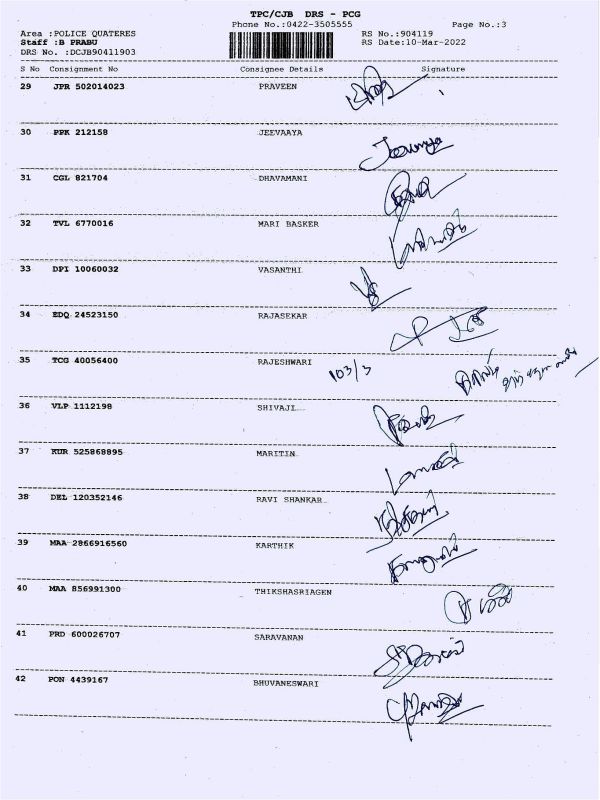 TPC/CJB DRS - PCG
Phone No.:0422-3505555 Page No.:3
Area :POLICE QUATERES RS No.:904119
Staff :B PRABU RS Date:10-Mar-2022
DRS No. :DCJB90411903
S No Consignment No Consignee Details Signature
29 JPR 502014023 PRAVEEN
30 PPK 212158 JEEVAAYA
31 CGL 821704 DHAVAMANI
32 TVL 6770016 MARI BASKER
33 DPI 10060032 VASANTHI
34 EDQ 24523150 RAJASEKAR
35 TCG 40056400 RAJESHWARI 103/3
36 VLP 1112198 SHIVAJI
37 KUR 525868895 MARITIN
38 DEL 120352146 RAVI SHANKAR
39 MAA 2866916560 KARTHIK
40 MAA 856991300 THIKSHASRIAGEN
41 PRD 600026707 SARAVANAN
42 PON 4439167 BHUVANESWARI